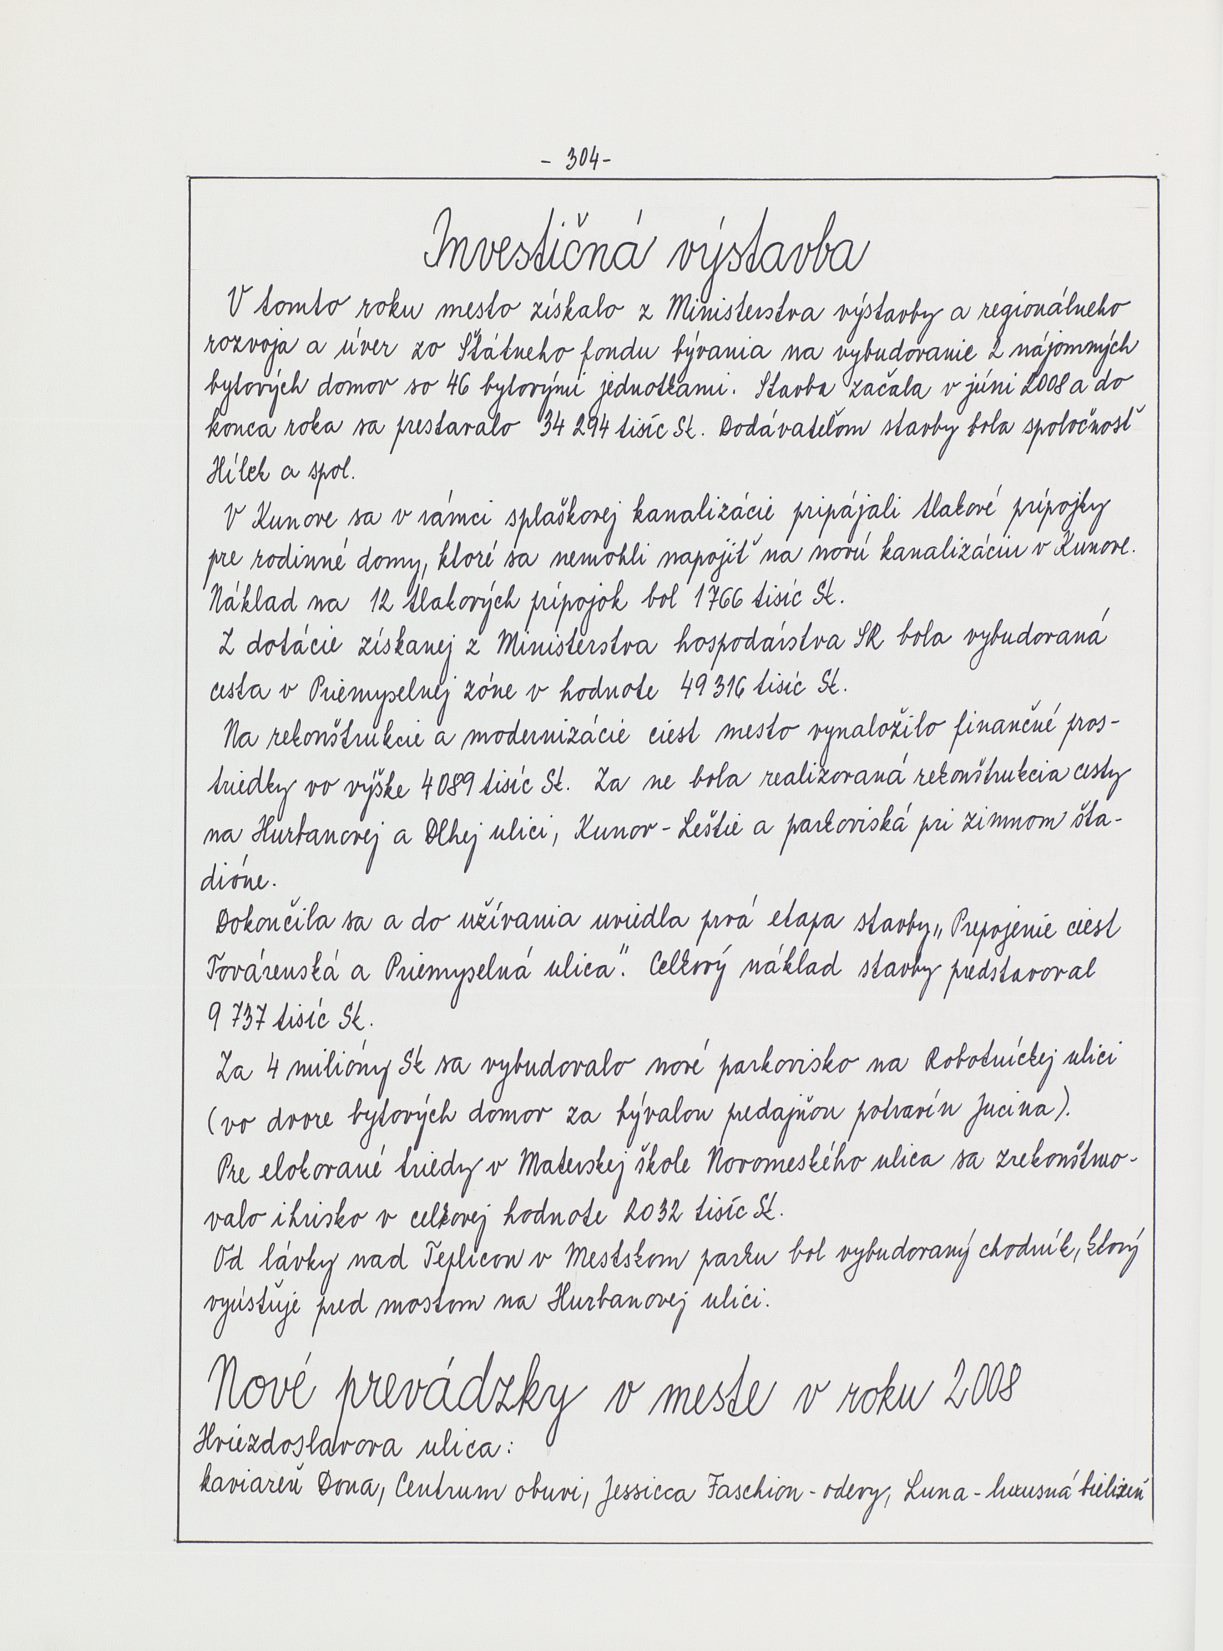 - 304 -
Investičná výstavba
V tomto roku mesto získalo z Ministerstva výstavby a regionálneho
rozvoja a úver zo Štátneho fondu bývania na vybudovanie 2 nájomných
bytových domov so 46 bytovými jednotkami. Stavba začala v júni 2008 a do
konca roka sa prestavalo 34 294 tisíc Sk. Dodávateľom stavby bola spoločnosť
Hílek a spol.
V Kunove sa v rámci splaškovej kanalizácie pripájali tlakové prípojky
pre rodinné domy, ktoré sa nemohli napojiť na novú kanalizáciu v Kunove.
Náklad na 12 tlakových prípojok bol 1 766 tisíc Sk.
Z dotácie získanej z Ministerstva hospodárstva SR bola vybudovaná
cesta v Priemyselnej zóne v hodnote 49 316 tisíc Sk.
Na rekonštrukcie a modernizácie ciest mesto vynaložilo finančné pros-
triedky vo výške 4 089 tisíc Sk. Za ne bola realizovaná rekonštrukcia cesty
na Hurbanovej a Dlhej ulici, Kunov - Leštie a parkoviská pri zimnom šta-
dióne.
Dokončila sa a do užívania uviedla prvá etapa stavby „Prepojenie ciest
Továrenská a Priemyselná ulica". Celkový náklad stavby predstavoval
9 737 tisíc Sk.
Za 4 milióny Sk sa vybudovalo nové parkovisko na Robotníckej ulici
(vo dvore bytových domov za bývalou predajňou potravín Jucina).
Pre elokované triedy v Materskej škole Novomeského ulica sa zrekonštruo-
valo ihrisko v celkovej hodnote 2032 tisíc Sk.
Od lávky nad Teplicou v Mestskom parku bol vybudovaný chodník, ktorý
vyúsťuje pred mostom na Hurbanovej ulici.
Nové prevádzky v meste v roku 2008
Hviezdoslavova ulica:
kaviareň Dona, Centrum obuvi, Jessicca Faschion - odevy, Luna - luxusná bielizeň